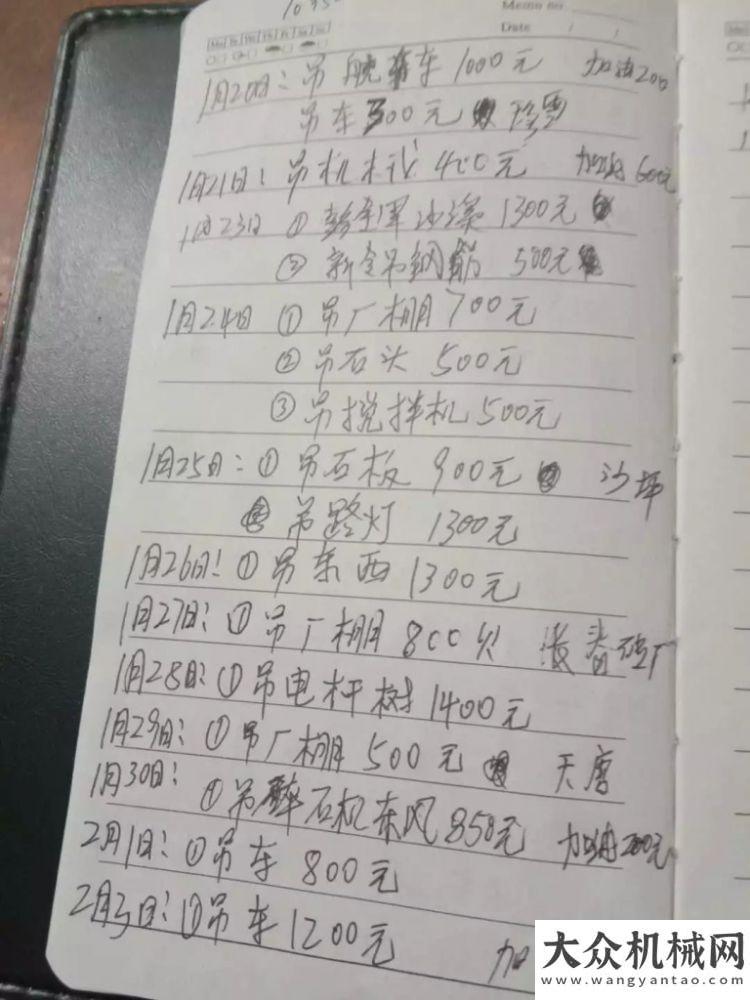 Memo no
Date / /
Mo Tu We Th Fr Sa Su
1月20日: 吊 车 1000元 加油200
吊车500元
1月21日: 吊机 400元 加油600元
1月23日 ① 1300元
② 新金吊钢筋 500元
1月24日 ① 吊厂棚700元
② 吊石头 500元
③ 吊搅拌机500元
1月25日: ① 吊石板 900元 沙坪
吊路灯 1300元
1月26日: ① 吊东西1300元
1月27日: ① 吊厂棚 800 厂
1月28日: ① 吊电杆树1400元
1月29日: ① 吊厂棚500元 天唐
1月30日: ① 吊碎石机东风850元 加油200元
2月1日: ① 吊车 800元
2月3日: ① 吊车1200元 加
大众机械网
www.wangyantao.com